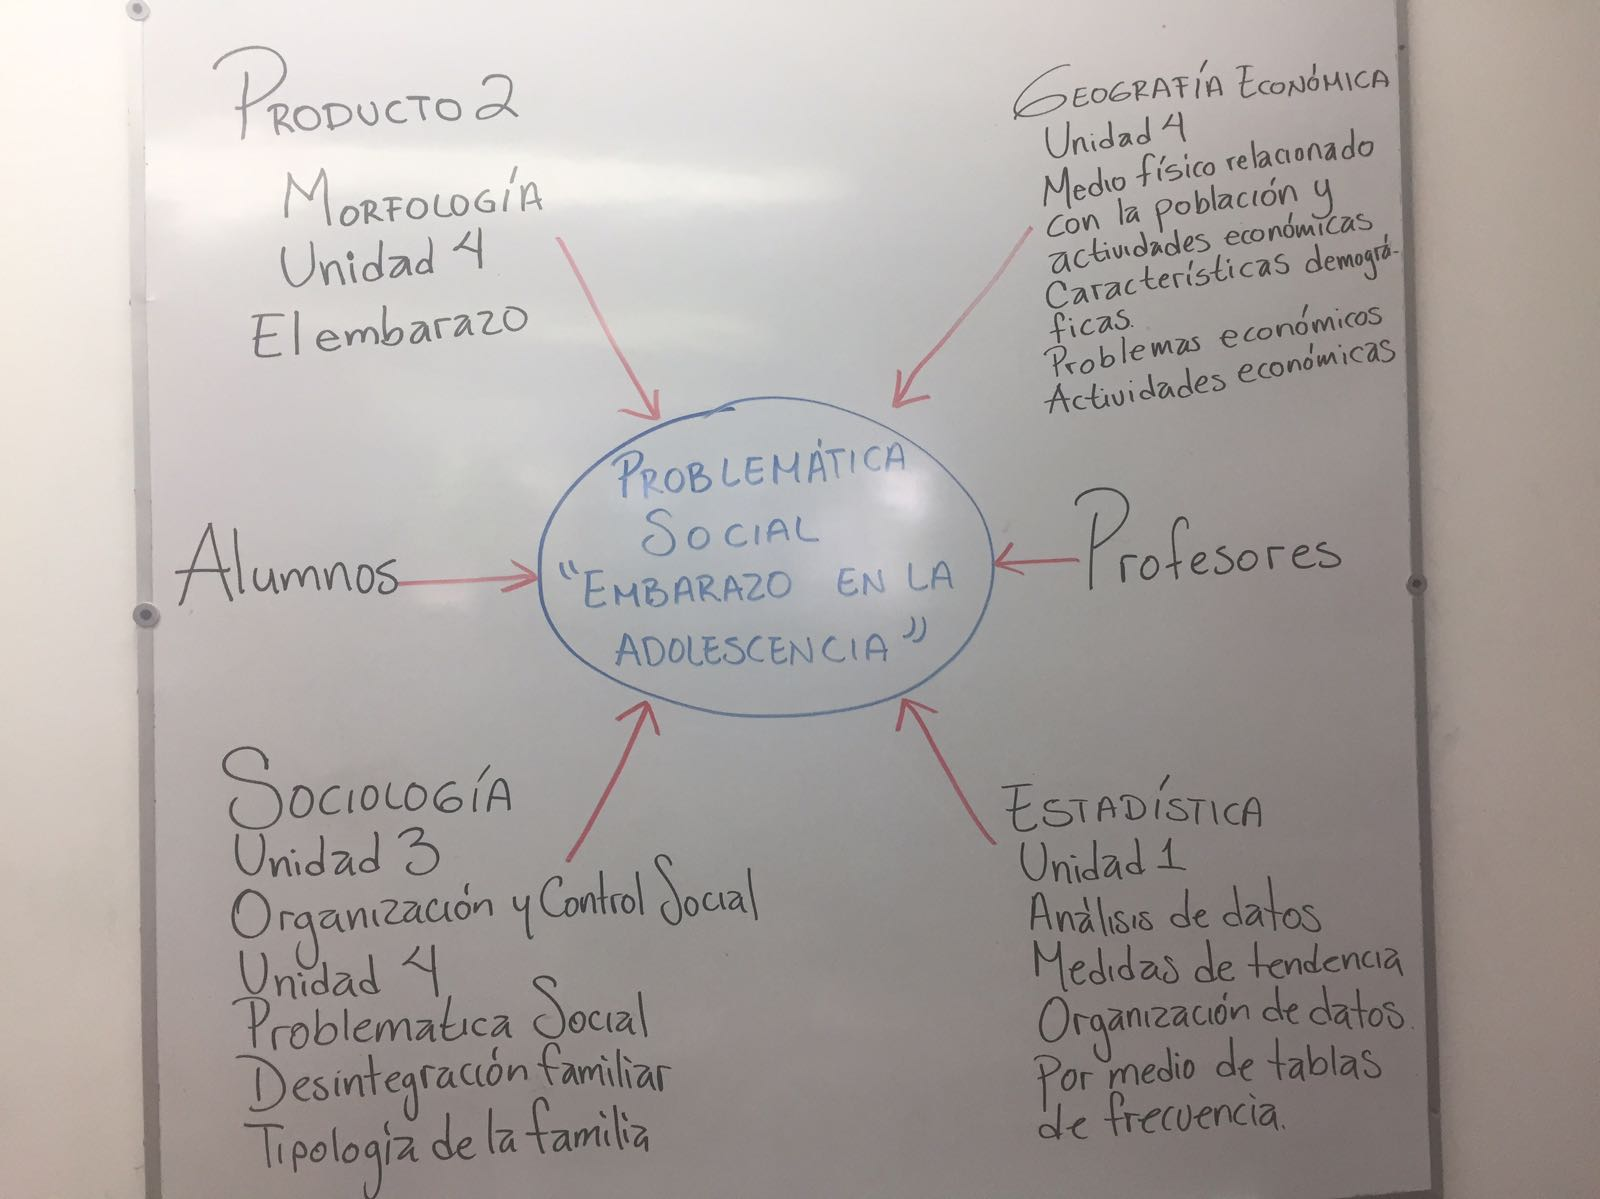 PRODUCTO 2
MORFOLOGÍA
Unidad 4
El embarazo
GEOGRAFÍA ECONÓMICA
Unidad 4
Medio físico relacionado
con la población y
actividades económicas
Características demográ-
ficas.
Problemas económicos
Actividades económicas
PROBLEMÁTICA
SOCIAL
"EMBARAZO EN LA
ADOLESCENCIA"
Alumnos
Profesores
SOCIOLOGÍA
Unidad 3
Organización y Control Social
Unidad 4
Problematica Social
Desintegración familiar
Tipología de la familia
ESTADÍSTICA
Unidad 1
Análisis de datos
Medidas de tendencia
Organización de datos.
Por medio de tablas
de frecuencia.